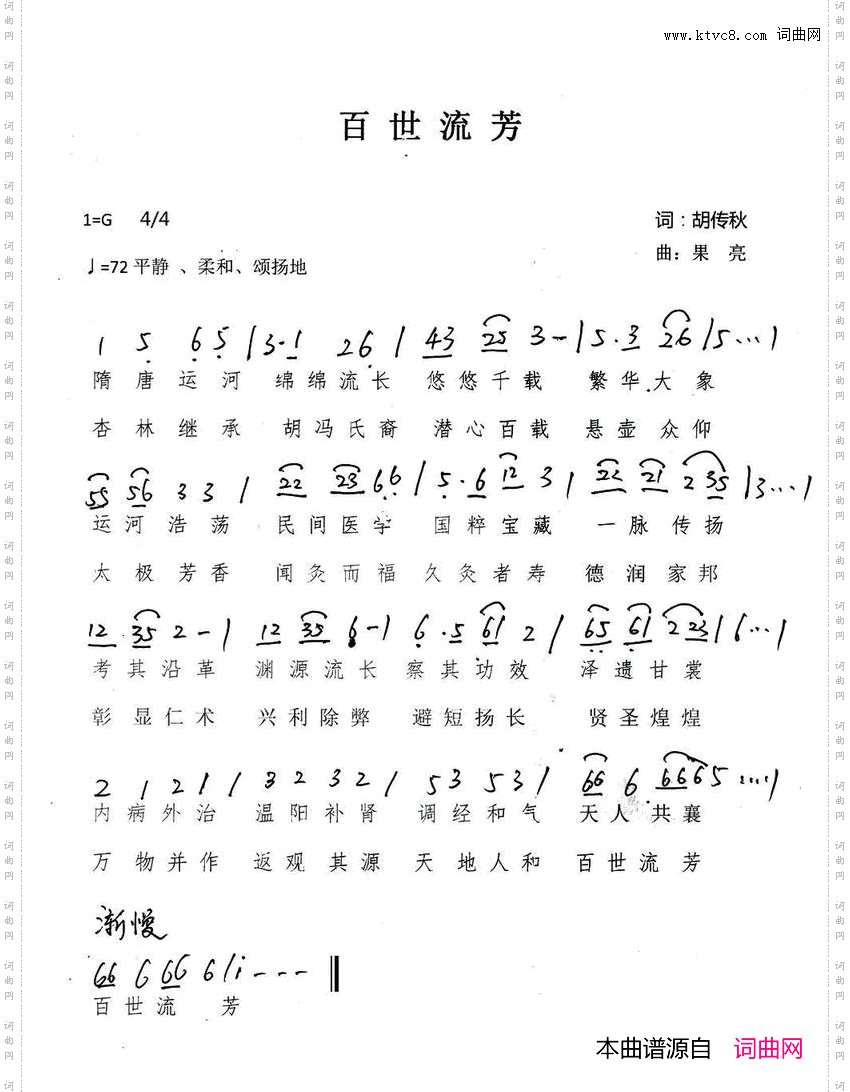 www.ktvc8.com 词曲网
百世流芳
1=G 4/4
词：胡传秋
♩=72 平静 、柔和、颂扬地
曲：果 亮
1 5 6 5 | 3·1 2 6 | 43 25 3 - | 5·3 26 | 5 ··· |
隋唐运河 绵绵流长 悠悠千载 繁华大象
杏林继承 胡冯氏裔 潜心百载 悬壶众仰
55 56 3 3 | 22 23 66 | 5·6 12 3 | 22 21 2 35 | 3 ··· |
运河浩荡 民间医学 国粹宝藏 一脉传扬
太极芳香 闻灸而福 久灸者寿 德润家邦
12 35 2 - | 12 35 6 - | 6·5 61 2 | 65 61 2 23 | 6 ··· |
考其沿革 渊源流长 察其功效 泽遗甘裳
彰显仁术 兴利除弊 避短扬长 贤圣煌煌
2 1 2 1 | 3 2 3 2 | 5 3 5 3 | 66 6 6665 ···· |
内病外治 温阳补肾 调经和气 天人共襄
万物并作 返观其源 天地人和 百世流芳
渐慢
66 6 66 6 | i - - - ‖
百世流 芳
本曲谱源自 词曲网
词曲网